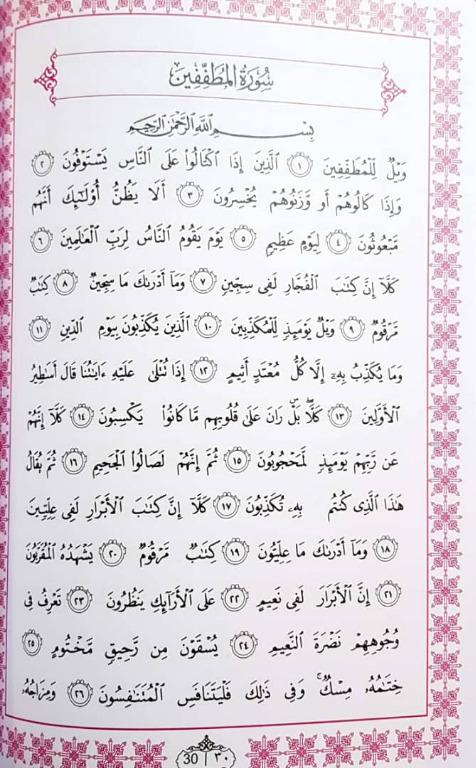 سُورَةُ المُطَفِّفِينَ
بِسْمِ اللَّهِ الرَّحْمَٰنِ الرَّحِيمِ
وَيْلٌ لِّلْمُطَفِّفِينَ ١ الَّذِينَ إِذَا اكْتَالُوا عَلَى النَّاسِ يَسْتَوْفُونَ ٢
وَإِذَا كَالُوهُمْ أَو وَّزَنُوهُمْ يُخْسِرُونَ ٣ أَلَا يَظُنُّ أُولَٰئِكَ أَنَّهُم
مَّبْعُوثُونَ ٤ لِيَوْمٍ عَظِيمٍ ٥ يَوْمَ يَقُومُ النَّاسُ لِرَبِّ الْعَالَمِينَ ٦
كَلَّا إِنَّ كِتَابَ الْفُجَّارِ لَفِي سِجِّينٍ ٧ وَمَا أَدْرَاكَ مَا سِجِّينٌ ٨ كِتَابٌ
مَّرْقُومٌ ٩ وَيْلٌ يَوْمَئِذٍ لِّلْمُكَذِّبِينَ ١٠ الَّذِينَ يُكَذِّبُونَ بِيَوْمِ الدِّينِ ١١
وَمَا يُكَذِّبُ بِهِ إِلَّا كُلُّ مُعْتَدٍ أَثِيمٍ ١٢ إِذَا تُتْلَىٰ عَلَيْهِ ءَايَاتُنَا قَالَ أَسَاطِيرُ
الْأَوَّلِينَ ١٣ كَلَّا بَلْ رَانَ عَلَىٰ قُلُوبِهِم مَّا كَانُوا يَكْسِبُونَ ١٤ كَلَّا إِنَّهُمْ
عَن رَّبِّهِمْ يَوْمَئِذٍ لَّمَحْجُوبُونَ ١٥ ثُمَّ إِنَّهُمْ لَصَالُوا الْجَحِيمِ ١٦ ثُمَّ يُقَالُ
هَٰذَا الَّذِي كُنتُم بِهِ تُكَذِّبُونَ ١٧ كَلَّا إِنَّ كِتَابَ الْأَبْرَارِ لَفِي عِلِّيِّينَ
١٨ وَمَا أَدْرَاكَ مَا عِلِّيُّونَ ١٩ كِتَابٌ مَّرْقُومٌ ٢٠ يَشْهَدُهُ الْمُقَرَّبُونَ
٢١ إِنَّ الْأَبْرَارَ لَفِي نَعِيمٍ ٢٢ عَلَى الْأَرَائِكِ يَنظُرُونَ ٢٣ تَعْرِفُ فِي
وُجُوهِهِمْ نَضْرَةَ النَّعِيمِ ٢٤ يُسْقَوْنَ مِن رَّحِيقٍ مَّخْتُومٍ ٢٥
خِتَامُهُ مِسْكٌ وَفِي ذَٰلِكَ فَلْيَتَنَافَسِ الْمُتَنَافِسُونَ ٢٦ وَمِزَاجُهُ
30 | ٣٠